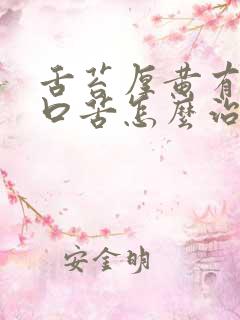 舌苔厚黄有
口苦怎麽治
安金明